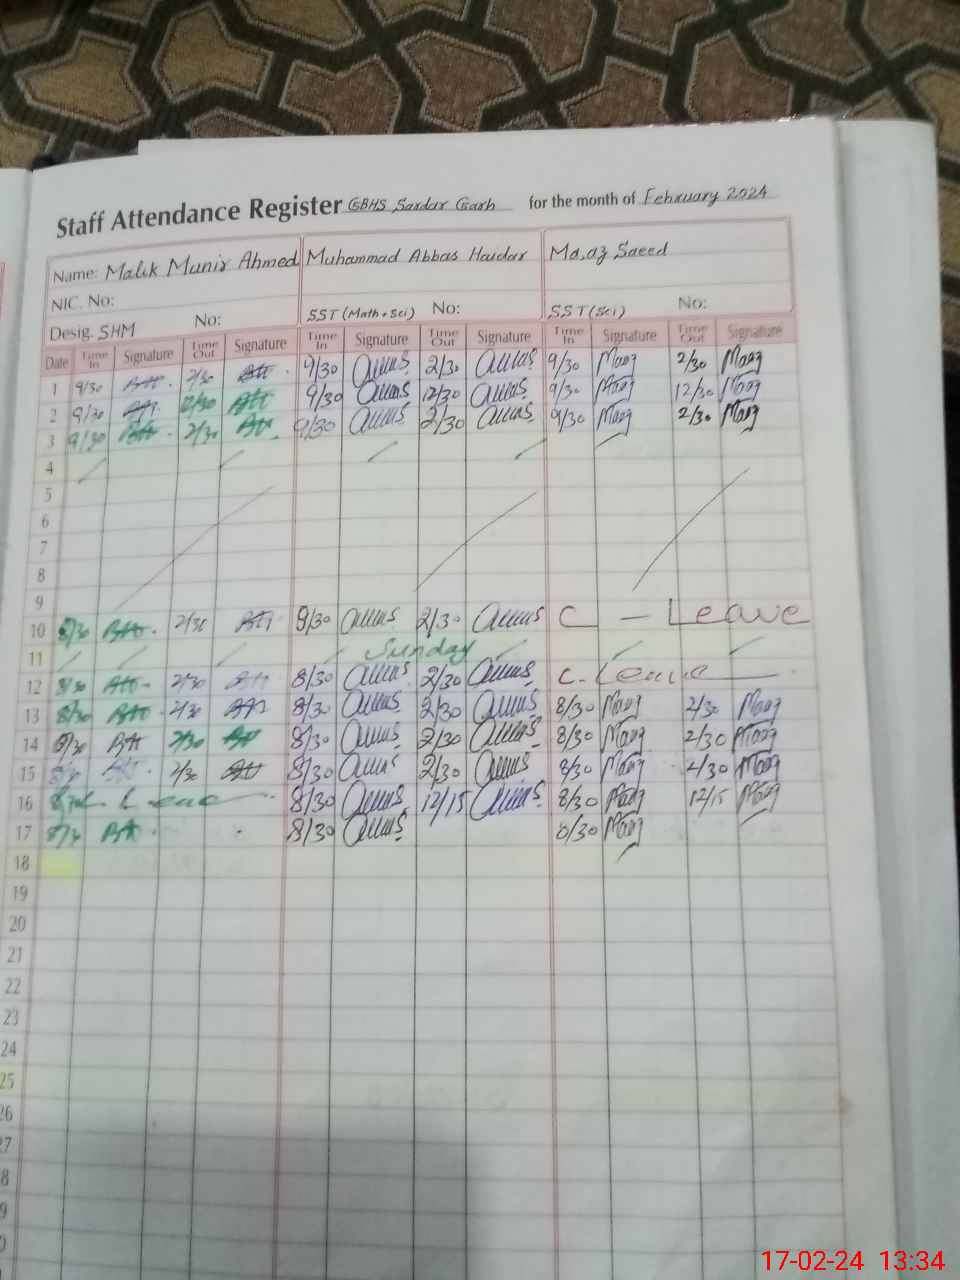 Staff Attendance Register GBHS Sardar Garh for the month of February 2024
Name: Malik Munir Ahmed Muhammad Abbas Haidar Maaz Saeed
NIC. No:
Desig. SHM No: SST (Math+Sci) No: SST (Sci) No:
Date Time In Signature Time Out Signature Time In Signature Time Out Signature Time In Signature Time Out Signature
1 9/30 2/30 9/30 2/30 9/30 Maaz 2/30 Maaz
2 9/30 12/30 9/30 12/30 9/30 Maaz 12/30 Maaz
3 9/30 2/30 9/30 2/30 9/30 Maaz 2/30 Maaz
4
5
6
7
8
9
10 8/30 2/30 9/30 2/30 C - Leave
11 Sunday
12 8/30 2/30 8/30 2/30 C. Leave
13 8/30 2/30 8/30 2/30 8/30 Maaz 2/30 Maaz
14 8/30 2/30 8/30 2/30 8/30 Maaz 2/30 Maaz
15 2/30 8/30 2/30 8/30 Maaz 2/30 Maaz
16 Leave 8/30 12/15 8/30 Maaz 12/15 Maaz
17 8/30 8/30 Maaz
18
19
20
21
22
23
24
25
26
27
8
9
0
17-02-24 13:34